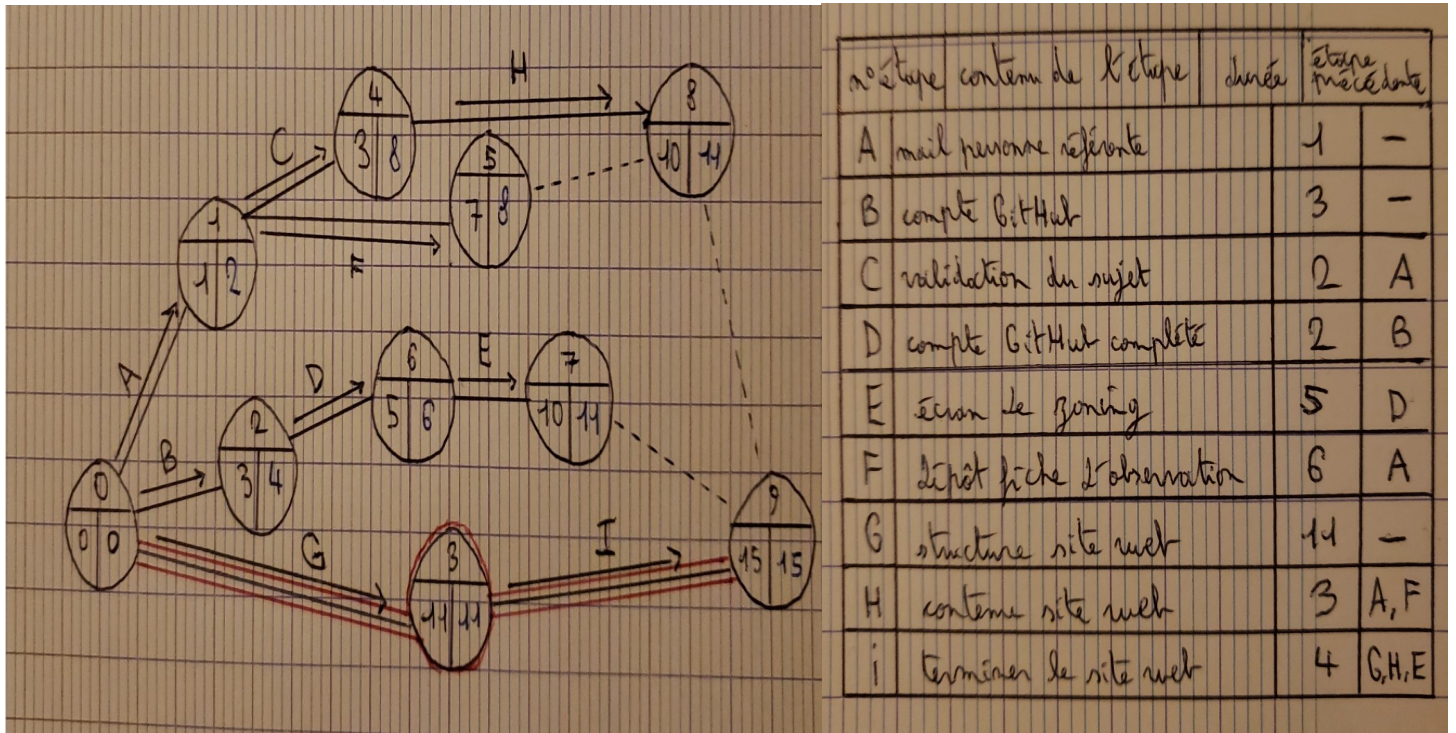 H
4
3 8
8
10 11
C
5
7 8
1
1 2
F
A
6
5 6
E
7
10 11
D
2
3 4
B
0
0 0
9
15 15
G
3
11 11
I
n° étape contenu de l'étape durée étape précédente
A mail personne référente 1 -
B compte GitHub 3 -
C validation du sujet 2 A
D compte GitHub complété 2 B
E écran de zoning 5 D
F dépôt fiche d'observation 6 A
G structure site web 11 -
H contenu site web 3 A, F
i terminer le site web 4 G, H, E